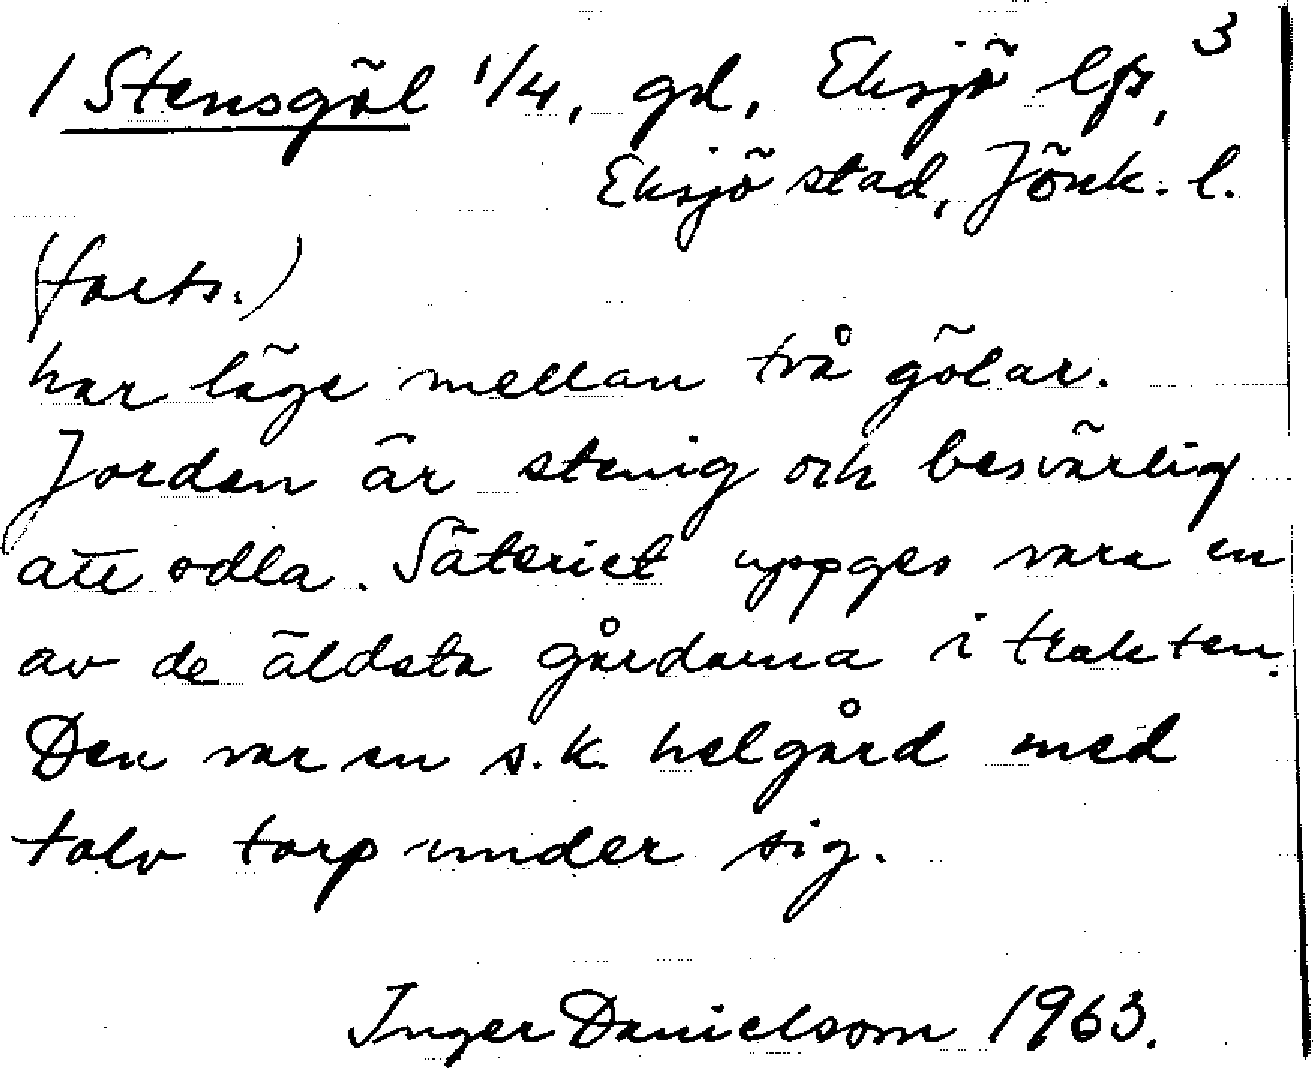 3
1 Stensgöl 1/4, gd, Eksjö lfs,
Eksjö stad, Jönk. l.
(forts.)
har läge mellan två gölar.
Jorden är stenig och besvärlig
att odla. Säteriet uppges vara en
av de äldsta gårdarna i trakten.
Den var en s.k. helgård med
tolv torp under sig.
Inger Danielsom 1963.